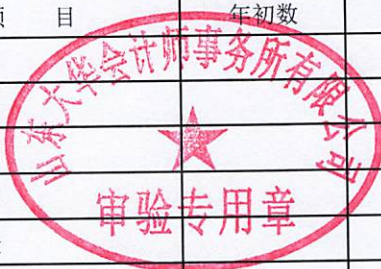 项 目 年初数
山东大华会计师事务所有限公司
审验专用章